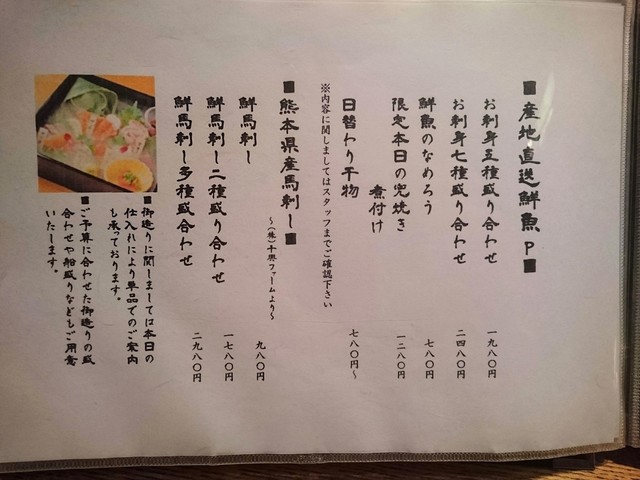 ■産地直送鮮魚P■
お刺身五種盛り合わせ 一九八〇円
お刺身七種盛り合わせ 二四八〇円
鮮魚のなめろう 七八〇円
限定本日の兜焼き 一二八〇円
煮付け
日替わり干物 七八〇円～
※内容に関しましてはスタッフまでご確認下さい
■熊本県産馬刺し■
～(株)千興ファームより～
鮮馬刺し 九八〇円
鮮馬刺し二種盛り合わせ 一七八〇円
鮮馬刺し多種盛合わせ 二九八〇円
■御造りに関しましては本日の
仕入れにより単品でのご案内
も承っております。
■ご予算に合わせた御造りの盛
合わせや船盛りなどもご用意
いたします。